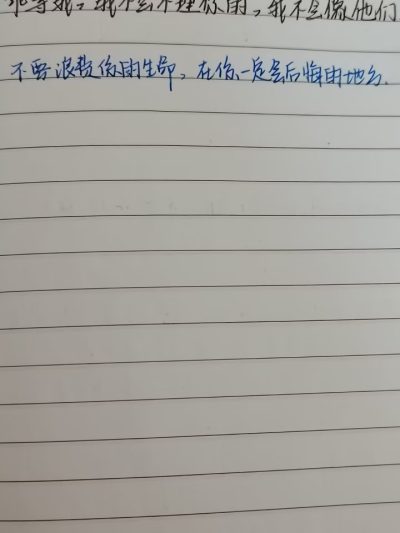 非等我，我不会不理你的，我不会像他们
不要浪费你的生命，在你一定会后悔的地方.